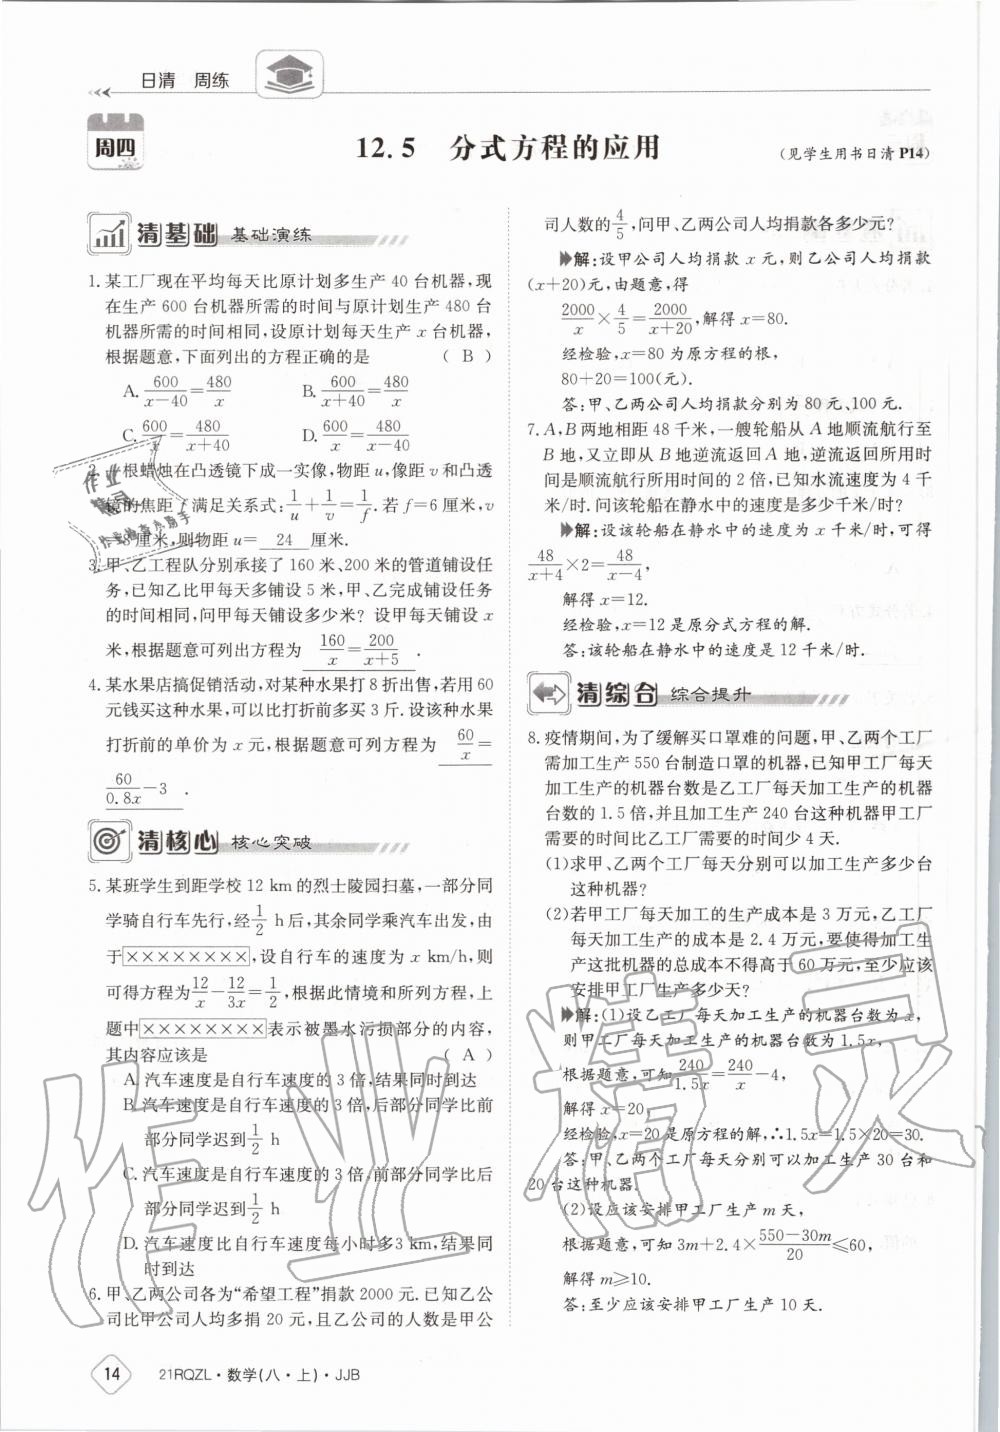 日清 周练
周四
12.5 分式方程的应用
(见学生用书日清P14)
清基础 基础演练
1. 某工厂现在平均每天比原计划多生产 40 台机器,现
在生产 600 台机器所需的时间与原计划生产 480 台
机器所需的时间相同,设原计划每天生产 x 台机器,
根据题意,下面列出的方程正确的是 ( B )
A. 600/(x-40)=480/x B. 600/(x+40)=480/x
C. 600/x=480/(x+40) D. 600/x=480/(x-40)
根蜡烛在凸透镜下成一实像,物距 u,像距 v 和凸透
镜的焦距 f 满足关系式:1/u+1/v=1/f. 若 f=6 厘米,v
8 厘米,则物距 u= 24 厘米.
3. 甲、乙工程队分别承接了 160 米、200 米的管道铺设任
务,已知乙比甲每天多铺设 5 米,甲、乙完成铺设任务
的时间相同,问甲每天铺设多少米? 设甲每天铺设 x
米,根据题意可列出方程为 160/x=200/(x+5) .
4. 某水果店搞促销活动,对某种水果打 8 折出售,若用 60
元钱买这种水果,可以比打折前多买 3 斤. 设该种水果
打折前的单价为 x 元,根据题意可列方程为 60/x=
60/0.8x-3 .
清核心 核心突破
5. 某班学生到距学校 12 km 的烈士陵园扫墓,一部分同
学骑自行车先行,经1/2 h后,其余同学乘汽车出发,由
于××××××××,设自行车的速度为 x km/h,则
可得方程为12/x-12/3x=1/2,根据此情境和所列方程,上
题中××××××××表示被墨水污损部分的内容,
其内容应该是 ( A )
A. 汽车速度是自行车速度的 3 倍,结果同时到达
B. 汽车速度是自行车速度的 3 倍,后部分同学比前
部分同学迟到1/2 h
C. 汽车速度是自行车速度的 3 倍,前部分同学比后
部分同学迟到1/2 h
D. 汽车速度比自行车速度每小时多3 km,结果同
时到达
6. 甲、乙两公司各为“希望工程”捐款 2000 元. 已知乙公
司比甲公司人均多捐 20 元,且乙公司的人数是甲公
司人数的4/5,问甲、乙两公司人均捐款各多少元?
解:设甲公司人均捐款 x 元,则乙公司人均捐款
(x+20)元,由题意,得
2000/x×4/5=2000/(x+20),解得 x=80.
经检验,x=80 为原方程的根,
80+20=100(元).
答:甲、乙两公司人均捐款分别为 80 元、100 元.
7. A,B 两地相距 48 千米,一艘轮船从 A 地顺流航行至
B 地,又立即从 B 地逆流返回 A 地,逆流返回所用时
间是顺流航行所用时间的 2 倍,已知水流速度为 4 千
米/时. 问该轮船在静水中的速度是多少千米/时?
解:设该轮船在静水中的速度为 x 千米/时,可得
48/(x+4)×2=48/(x-4),
解得 x=12.
经检验,x=12 是原分式方程的解.
答:该轮船在静水中的速度是 12 千米/时.
清综合 综合提升
8. 疫情期间,为了缓解买口罩难的问题,甲、乙两个工厂
需加工生产 550 台制造口罩的机器,已知甲工厂每天
加工生产的机器台数是乙工厂每天加工生产的机器
台数的 1.5 倍,并且加工生产 240 台这种机器甲工厂
需要的时间比乙工厂需要的时间少 4 天.
(1)求甲、乙两个工厂每天分别可以加工生产多少台
这种机器?
(2)若甲工厂每天加工的生产成本是 3 万元,乙工厂
每天加工生产的成本是 2.4 万元,要使得加工生
产这批机器的总成本不得高于 60 万元,至少应该
安排甲工厂生产多少天?
解:(1)设乙工厂每天加工生产的机器台数为 x,
则甲工厂每天加工生产的机器台数为 1.5x,
根据题意,可知240/1.5x=240/x-4,
解得 x=20,
经检验,x=20 是原方程的解,∴1.5x=1.5×20=30.
答:甲、乙两个工厂每天分别可以加工生产 30 台和
20 台这种机器.
(2)设应该安排甲工厂生产 m 天,
根据题意,可知 3m+2.4×(550-30m)/20≤60,
解得 m≥10.
答:至少应该安排甲工厂生产 10 天.
14 21RQZL·数学(八·上)·JJB
作业精灵